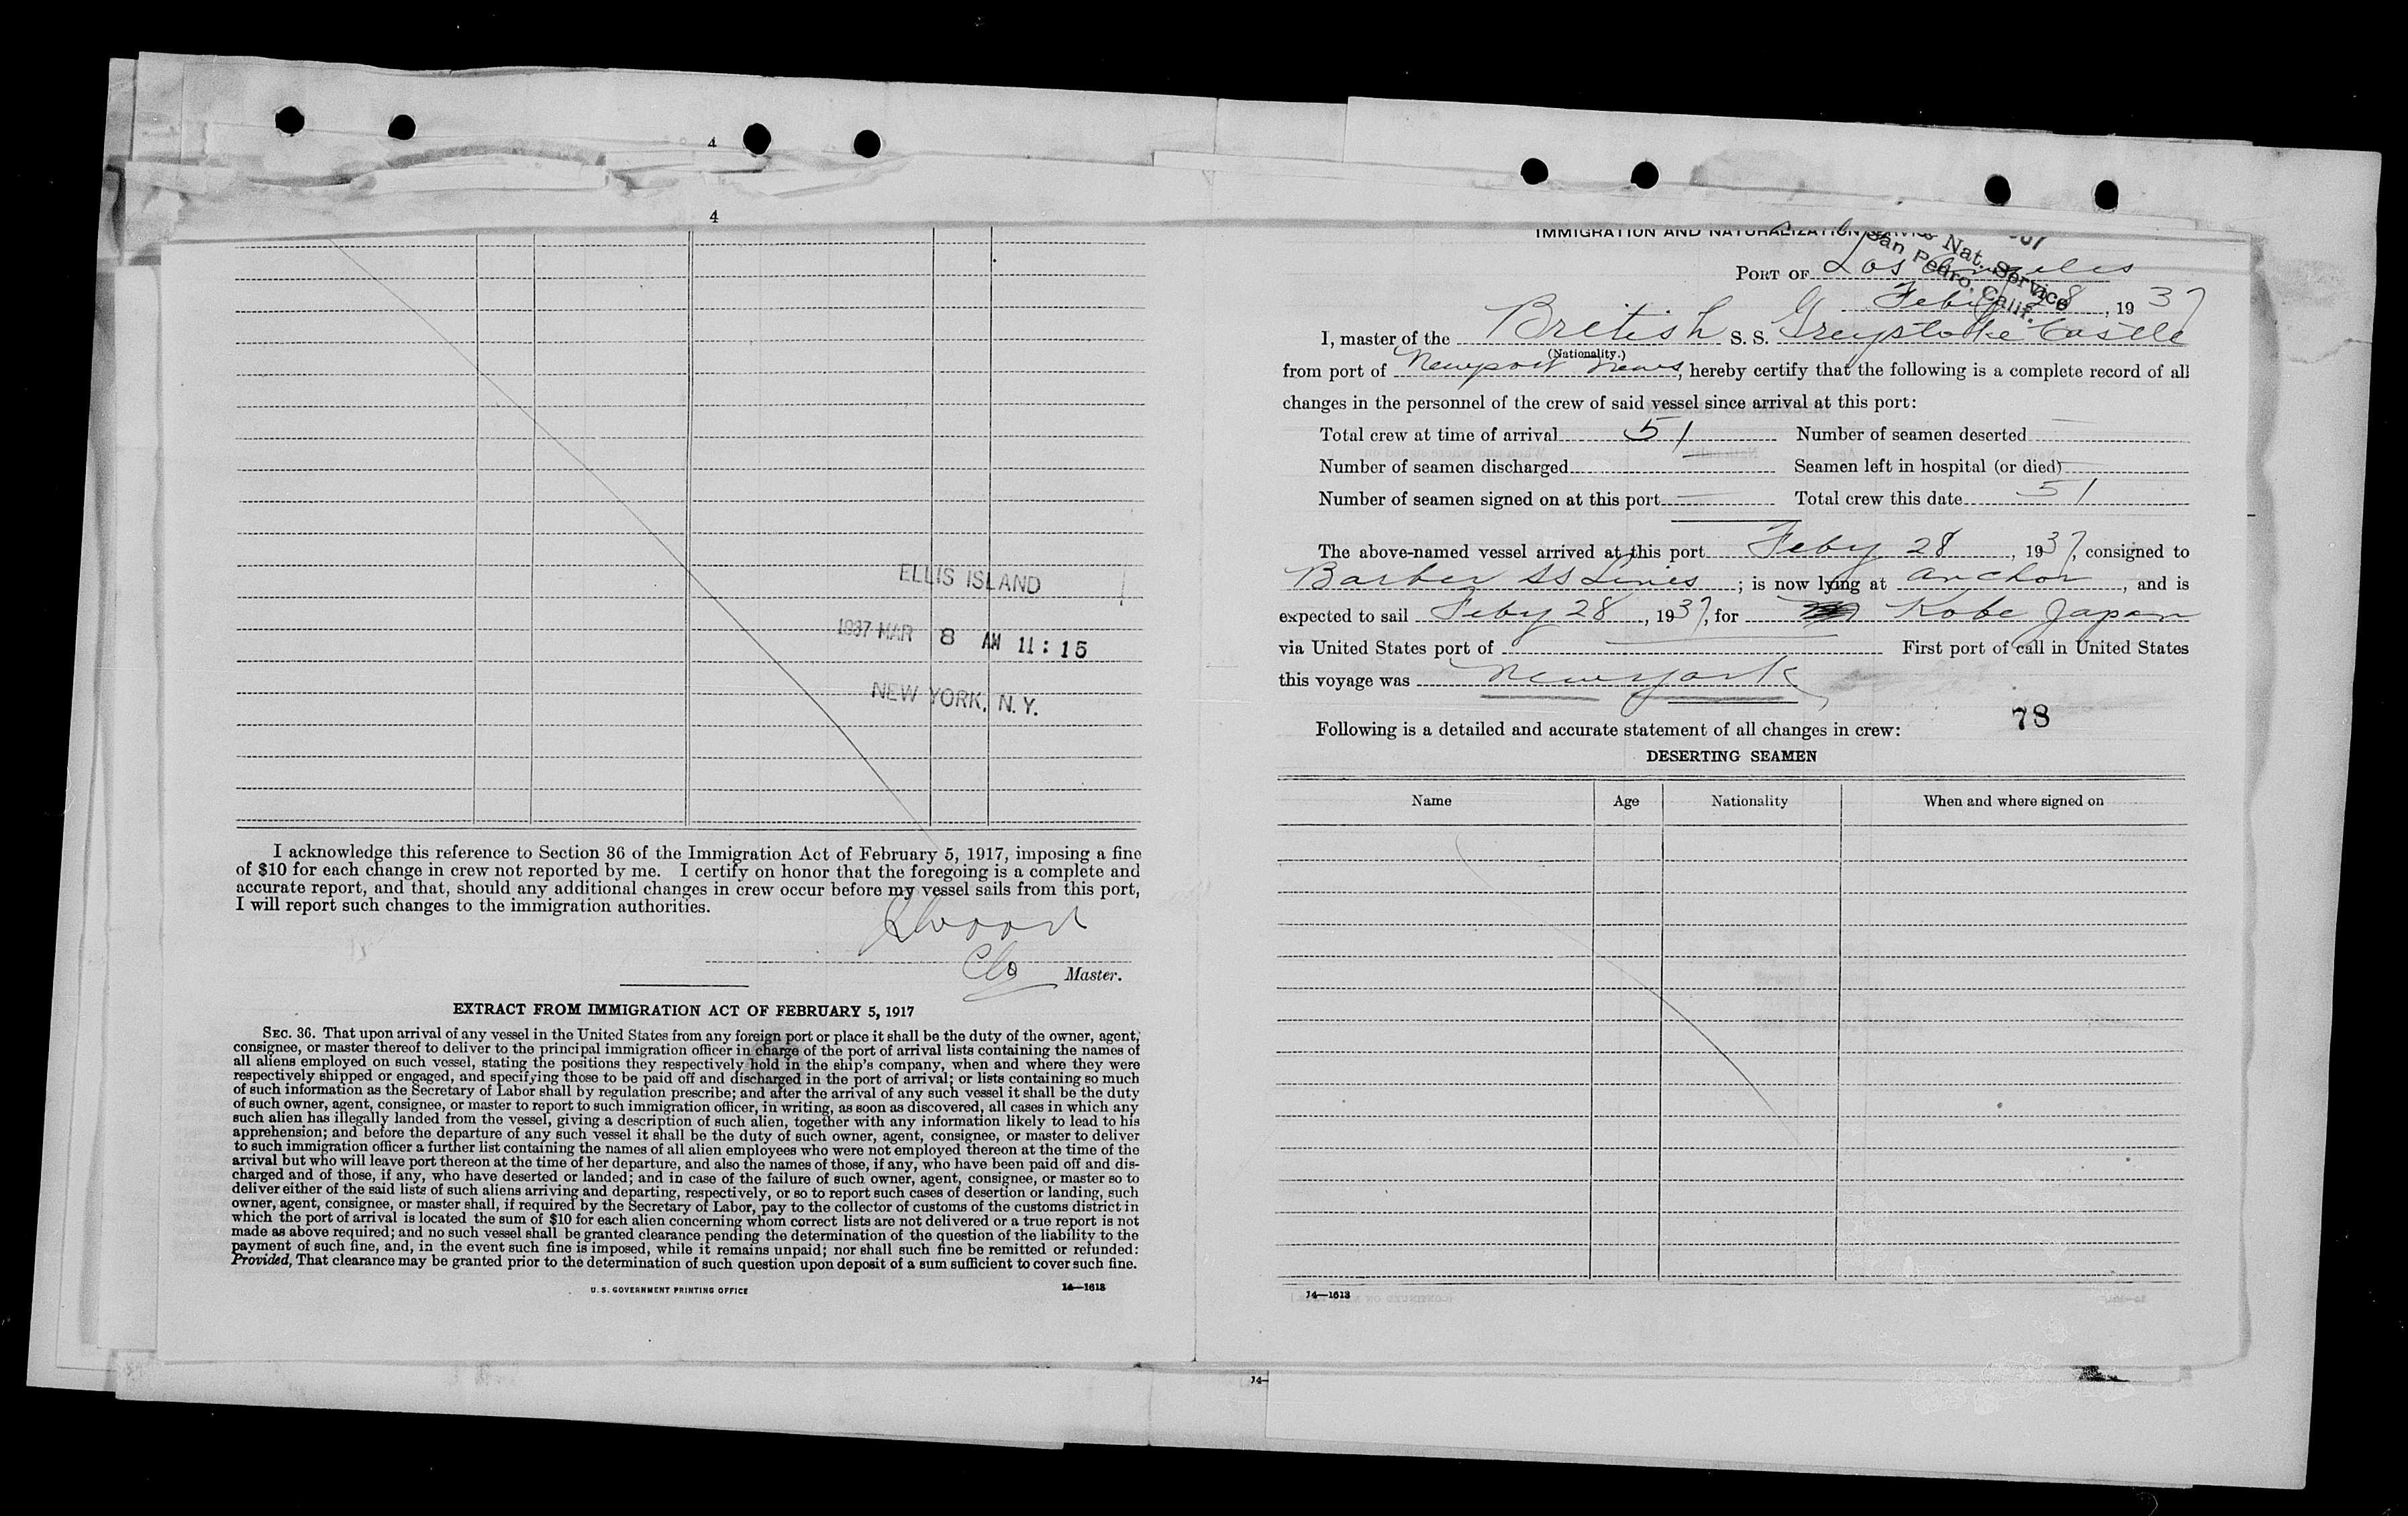 4
4
ELLIS ISLAND
1937 MAR 8 AM 11:15
NEW YORK, N.Y.
I acknowledge this reference to Section 36 of the Immigration Act of February 5, 1917, imposing a fine
of $10 for each change in crew not reported by me. I certify on honor that the foregoing is a complete and
accurate report, and that, should any additional changes in crew occur before my vessel sails from this port,
I will report such changes to the immigration authorities.
Master.
EXTRACT FROM IMMIGRATION ACT OF FEBRUARY 5, 1917
SEC. 36. That upon arrival of any vessel in the United States from any foreign port or place it shall be the duty of the owner, agent,
consignee, or master thereof to deliver to the principal immigration officer in charge of the port of arrival lists containing the names of
all aliens employed on such vessel, stating the positions they respectively hold in the ship's company, when and where they were
respectively shipped or engaged, and specifying those to be paid off and discharged in the port of arrival; or lists containing so much
of such information as the Secretary of Labor shall by regulation prescribe; and after the arrival of any such vessel it shall be the duty
of such owner, agent, consignee, or master to report to such immigration officer, in writing, as soon as discovered, all cases in which any
such alien has illegally landed from the vessel, giving a description of such alien, together with any information likely to lead to his
apprehension; and before the departure of any such vessel it shall be the duty of such owner, agent, consignee, or master to deliver
to such immigration officer a further list containing the names of all alien employees who were not employed thereon at the time of the
arrival but who will leave port thereon at the time of her departure, and also the names of those, if any, who have been paid off and dis-
charged and of those, if any, who have deserted or landed; and in case of the failure of such owner, agent, consignee, or master so to
deliver either of the said lists of such aliens arriving and departing, respectively, or so to report such cases of desertion or landing, such
owner, agent, consignee, or master shall, if required by the Secretary of Labor, pay to the collector of customs of the customs district in
which the port of arrival is located the sum of $10 for each alien concerning whom correct lists are not delivered or a true report is not
made as above required; and no such vessel shall be granted clearance pending the determination of the question of the liability to the
payment of such fine, and, in the event such fine is imposed, while it remains unpaid; nor shall such fine be remitted or refunded:
Provided, That clearance may be granted prior to the determination of such question upon deposit of a sum sufficient to cover such fine.
U. S. GOVERNMENT PRINTING OFFICE 14—1613
IMMIGRATION AND NATURALIZATION SERVICE
Nat. Service
San Pedro, Calif.
PORT OF Los Angeles
Feby 28, 1937
I, master of the British S. S. Greystoke Castle
(Nationality.)
from port of Newport News, hereby certify that the following is a complete record of all
changes in the personnel of the crew of said vessel since arrival at this port:
Total crew at time of arrival 51 Number of seamen deserted —
Number of seamen discharged — Seamen left in hospital (or died) —
Number of seamen signed on at this port — Total crew this date 51
The above-named vessel arrived at this port Feby 28, 1937, consigned to
Barber SS Lines; is now lying at anchor, and is
expected to sail Feby 28, 1937, for Kobe Japan
via United States port of — First port of call in United States
this voyage was New York
78
Following is a detailed and accurate statement of all changes in crew:
DESERTING SEAMEN
Name Age Nationality When and where signed on
14—1613
14—